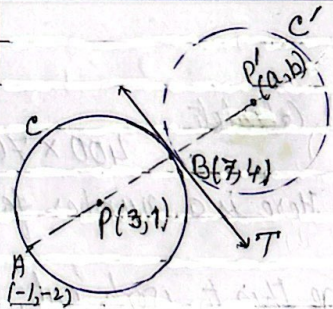 C'
P'(a,b)
C
B(7,4)
P(3,1)
T
A
(-1,-2)